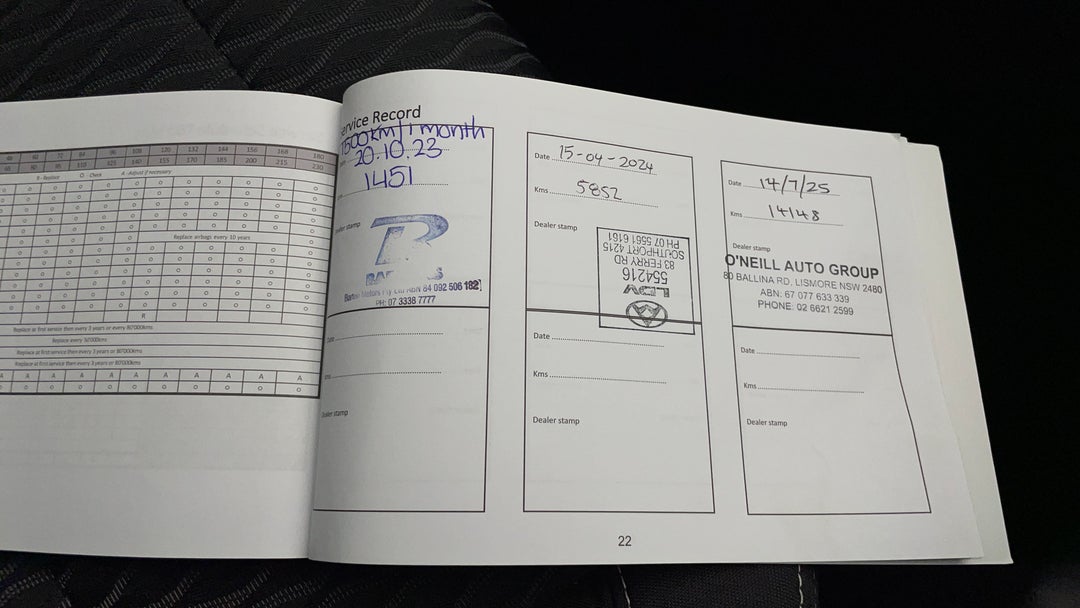 48 60 72 84 96 108 120 132 144 156 168 180
R - Replace O - Check A - Adjust if necessary
Replace airbags every 10 years
R
Replace at first service then every 3 years or every 80'000kms
Replace every 50'000kms
Replace at first service then every 3 years or 80'000kms
Replace at first service then every 3 years or 80'000kms
A A A A A A A A A A
ervice Record
1500km/1 month
20.10.23
1451
ealer stamp
Motors Pty Ltd ABN 84 092 506 182
PH: 07 3338 7777
Date
Kms
Dealer stamp
Date 15-04-2024
Kms 5852
Dealer stamp
LDV
554216
83 FERRY RD
SOUTHPORT 4215
PH 07 5561 6161
Date
Kms
Dealer stamp
Date 14/7/25
Kms 14148
Dealer stamp
O'NEILL AUTO GROUP
80 BALLINA RD, LISMORE NSW 2480
ABN: 67 077 633 339
PHONE: 02 6621 2599
Date
Kms
Dealer stamp
22